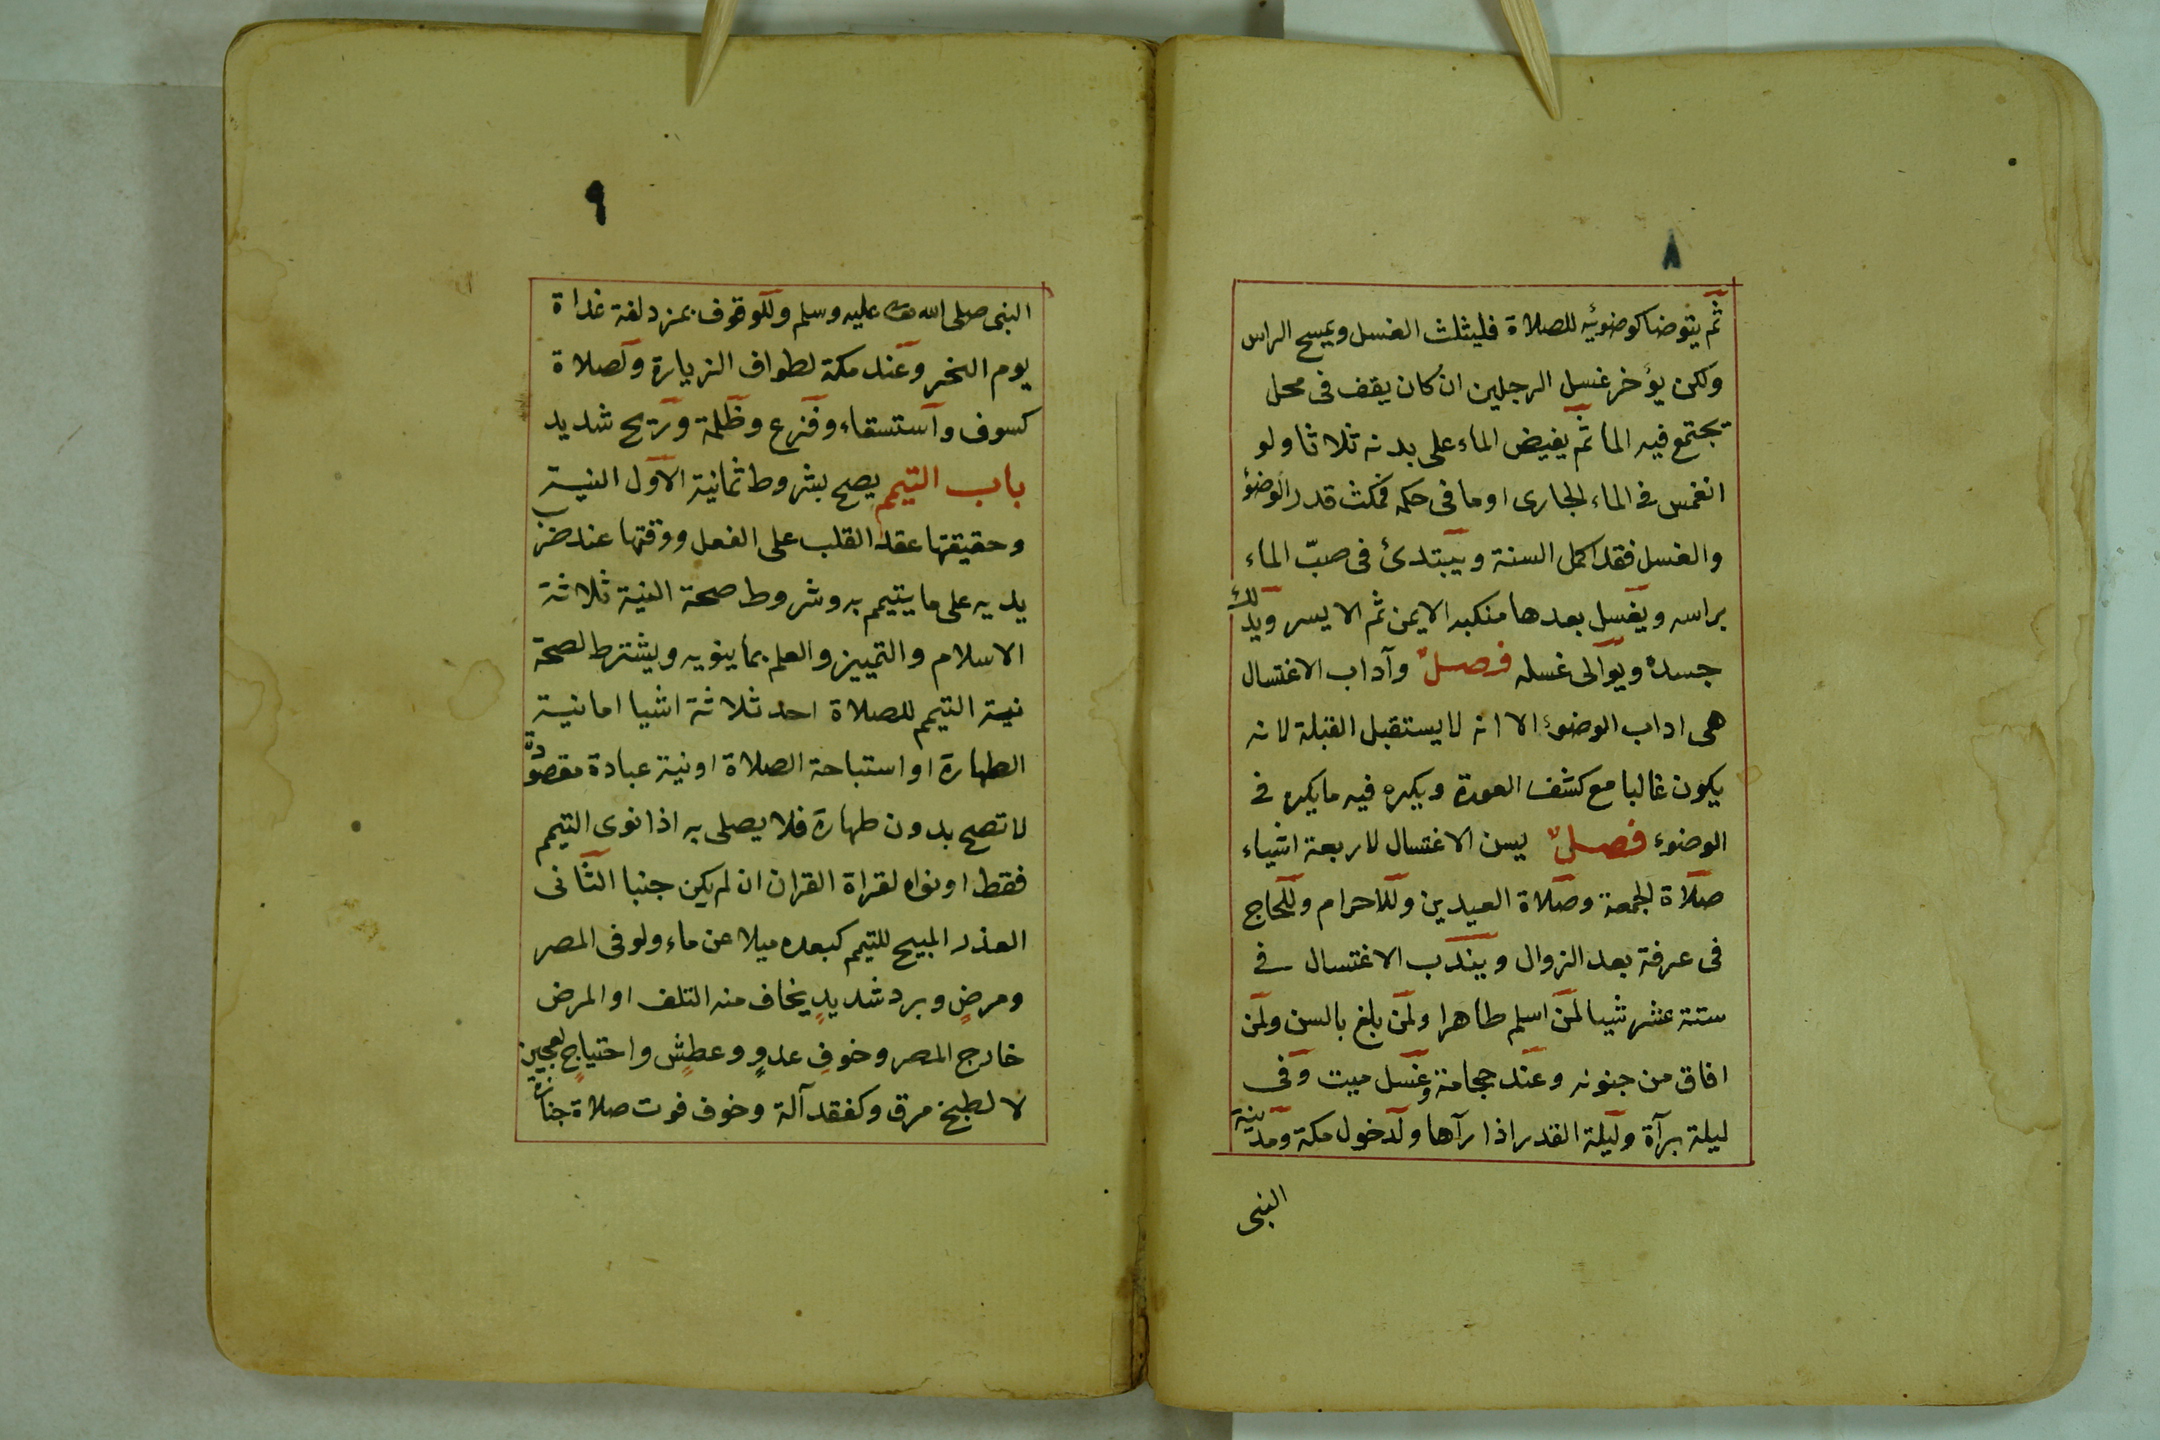 ٨
ثم يتوضا كوضوئه للصلاة فليثلث الغسل ويمسح الراس
ولكن يؤخر غسل الرجلين ان كان يقف فى محل
يجتمع فيه الما ثم يفيض الماء على بدنه ثلاثا ولو
انغمس فى الماء الجارى او ما فى حكمه فمكث قدر الوضوء
والغسل فقد اكمل السنة ويبتدئ فى صبّ الماء
براسه ويغسل بعدها منكبه الايمن ثم الايسر ويدلك
جسده ويوالى غسله فصل وآداب الاغتسال
هى اداب الوضوء الا انه لا يستقبل القبلة لانه
يكون غالبا مع كشف العورة ويكره فيه ما يكره فى
الوضوء فصل يسن الاغتسال لاربعة اشياء
صلاة الجمعة وصلاة العيدين وللاحرام وللحاج
فى عرفة بعد الزوال ويندب الاغتسال فى
ستة عشر شيا لمن اسلم طاهرا ولمن بلغ بالسن ولمن
افاق من جنونه وعند حجامة وغسل ميت وفى
ليلة برآة وليلة القدر اذا رآها ولدخول مكة ومدينة
النبى
٩
النبى صلى الله عليه وسلم وللوقوف بمزدلفة غداة
يوم النحر وعند مكة لطواف الزيارة ولصلاة
كسوف واستسقاء وفزع وظلمة وريح شديد
باب التيمم يصح بشروط ثمانية الاول النية
وحقيقتها عقد القلب على الفعل ووقتها عند ضرب
يديه على ما يتيمم به وشروط صحة النية ثلاثة
الاسلام والتمييز والعلم بما ينويه ويشترط لصحة
نية التيمم للصلاة احد ثلاثة اشيا اما نية
الطهارة او استباحة الصلاة او نية عبادة مقصودة
لا تصح بدون طهارة فلا يصلى به اذا نوى التيمم
فقط او نواه لقراة القران ان لم يكن جنبا الثانى
العذر المبيح للتيمم كبعده ميلا عن ماء ولو فى المصر
ومرضٍ وبرد شديدٍ يخاف منه التلف او المرض
خارج المصر وخوفِ عدوٍ وعطشٍ واحتياجٍ لعجين
لا لطبخ مرق وكفقد آلة وخوف فوت صلاة جنازة